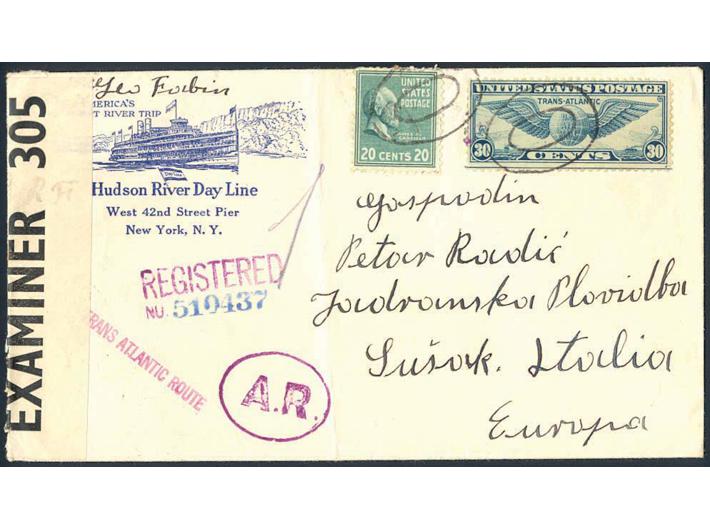 EXAMINER 305
Geo Fabin
MERICA'S
T RIVER TRIP
Day Line
Hudson River Day Line
West 42nd Street Pier
New York, N. Y.
REGISTERED
NO. 510437
TRANS ATLANTIC ROUTE
A.R.
UNITED
STATES
POSTAGE
20 CENTS 20
UNITED STATES POSTAGE
TRANS-ATLANTIC
30 CENTS 30
Gospodin
Petar Radić
Jadranska Plovidba
Sušak. Italia
Europa